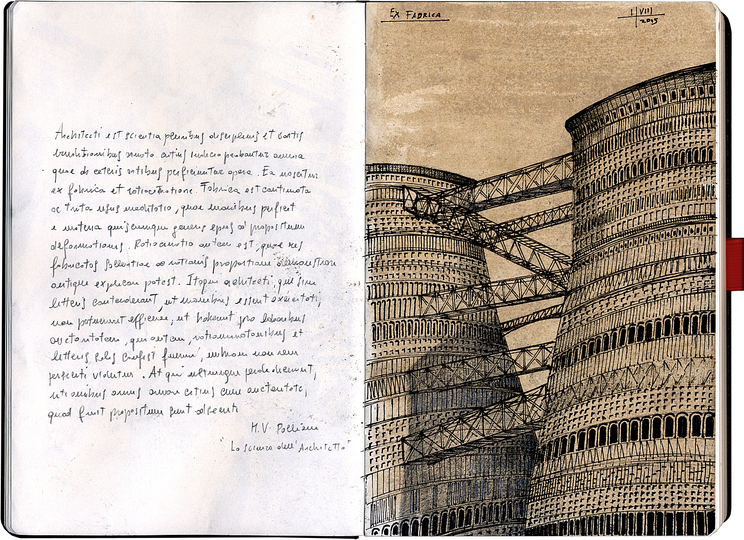 Architecti est scientia pluribus disciplinis et variis
eruditionibus
quae ab ceteris artibus perficiuntur opera. Ea nascitur
ex fabrica et ratiocinatione. Fabrica est continuata
ac trita usus meditatio, quae manibus perficit
e materia generis opus ad propositum
deformationis. Ratiocinatio autem est, quae res
fabricatas ac rationis
explicare potest. Itaque architecti, qui sine
litteris contenderant, ut manibus essent exercitati,
non potuerunt efficere, ut haberent pro laboribus
qui autem ratiocinationibus et
litteris fuerunt, umbram non rem
persecuti videntur. At qui utrumque perdidicerunt,
omnibus armis cum auctoritate,
quod fuit propositum sunt
M.V. Pollione
"La scienza dell'Architetto"
Ex FABRICA
1 VIII
2015